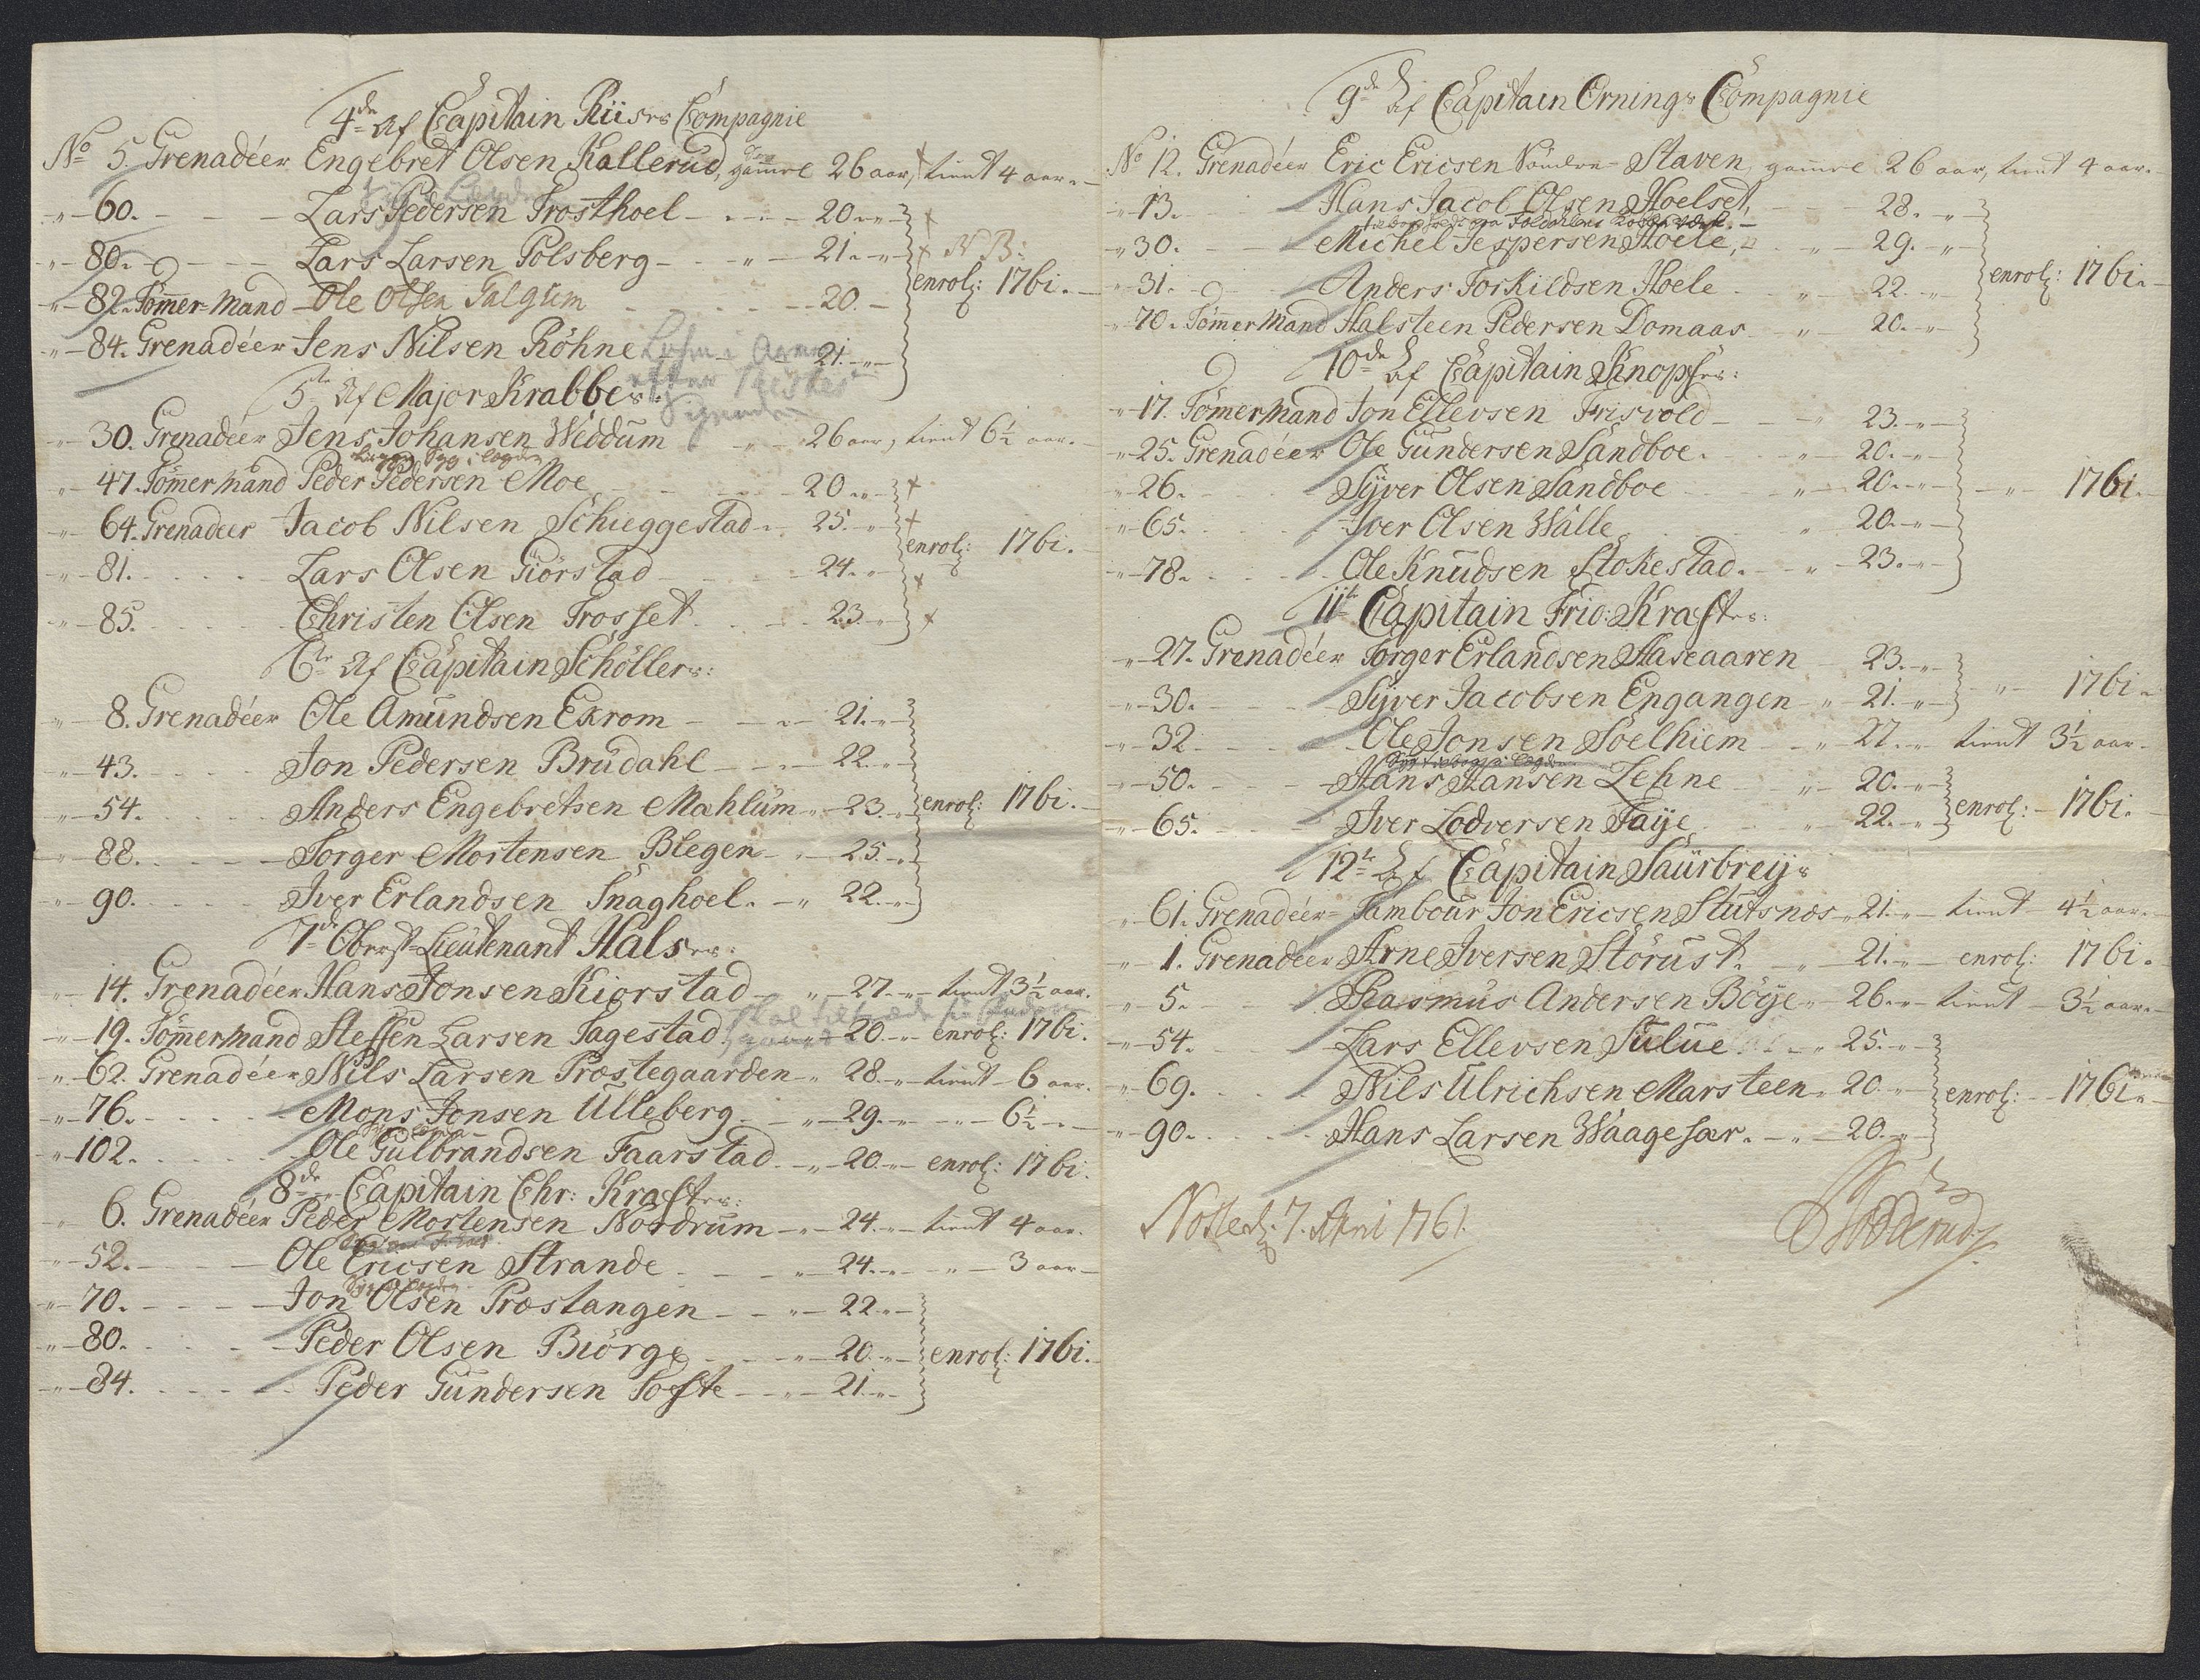 4de Af Capitain Riises Compagnie
No 5. Grenadéer Engebret Olsen Kallerud, gamel 26 aar, tient 4 aar.
60. Lars Pedersen Trosthoel 20.
80. Lars Larsen Polsberg 21. NB:
82. Tömmer-Mand Ole Olsen Galgum 20. enrol: 1761.
84. Grenadéer Jens Nilsen Röhne 21.
5te Af Major Krabbes:
30. Grenadéer Jens Johansen Weddum 26 aar, tient 6½ aar.
Ligger Syg i Lægden
47. Tömmermand Peder Pedersen Moe 20
64. Grenadéer Jacob Nilsen Schieggestad 25. enrol: 1761.
81. Lars Olsen Giörstad 24.
85. Christen Olsen Trosset 23.
6te Af Capitain Schöllers:
8. Grenadéer Ole Amundsen Exrom 21.
43. Jon Pedersen Brudahl 22.
54. Anders Engebretsen Mahlum 23. enrol: 1761.
88. Torger Mortensen Blegen 25.
90. Iver Erlandsen Snaghoel. 22.
7de Oberst-Lieutenant Halses:
14. Grenadéer Hans Jonsen Kiorstad 27. tient 3½ aar.
19. Tömmermand Steffen Larsen Tagestad 20. enrol: 1761.
62. Grenadéer Nils Larsen Præstegaarden 28. tient 6 aar.
76. Mons Jonsen Ulleberg 29. 6½
102. Ole Gulbrandsen Faarstad 20. enrol: 1761.
8de Capitain Chr: Kraftes:
6. Grenadéer Peder Mortensen Nordrum 24. tient 4 aar.
52. Ole Ericsen Strande 24. 3 aar
70. Jon Olsen Præstangen 22.
80. Peder Olsen Biörge 20. enrol: 1761.
84. Peder Gundersen Tofte 21.
9de Af Capitain Ornings Compagnie
No 12. Grenadéer Eric Ericsen Nöndre Staven, gamel 26 aar, tient 4 aar.
13. Hans Jacob Olsen Hoelset, 28.
30. Michel Jespersen Hoele, 29.
31. Anders Torkildsen Hoele 22. enrol: 1761.
70. Tömmermand Halsteen Pedersen Domaas 20.
10de Af Capitain Knopfes:
17. Tömmermand Jon Ellevsen Frisvold 23.
25. Grenadéer Ole Gundersen Sandboe. 20.
26. Syver Olsen Sandboe 20. 1761.
65. Iver Olsen Walle 20.
78. Ole Knudsen Stokestad. 23.
11te Capitain Frid: Kraftes:
27. Grenadéer Torger Erlandsen Haseaaren 23.
30. Syver Jacobsen Engangen 21. 1761.
32 Ole Jonsen Söelhiem 27. tient 3½ aar.
50. Hans Hansen Lehne 20.
65. Iver Lodversen Faije 22. enrol: 1761.
12te Af Capitain Saurbreys
61. Grenadéer-Tambour Jon Ericsen Slutsnæs 21. tient 4½ aar.
1. Grenadéer Arne Iversen Störust. 21. enrol: 1761.
5. Rasmus Andersen Böye 26. tient 3½ aar.
54. Lars Ellevsen Sulue 25.
69. Nils Ulrichsen Marsteen 20. enrol: 1761.
90. Hans Larsen Waagesær. 20.
7. April 1761.